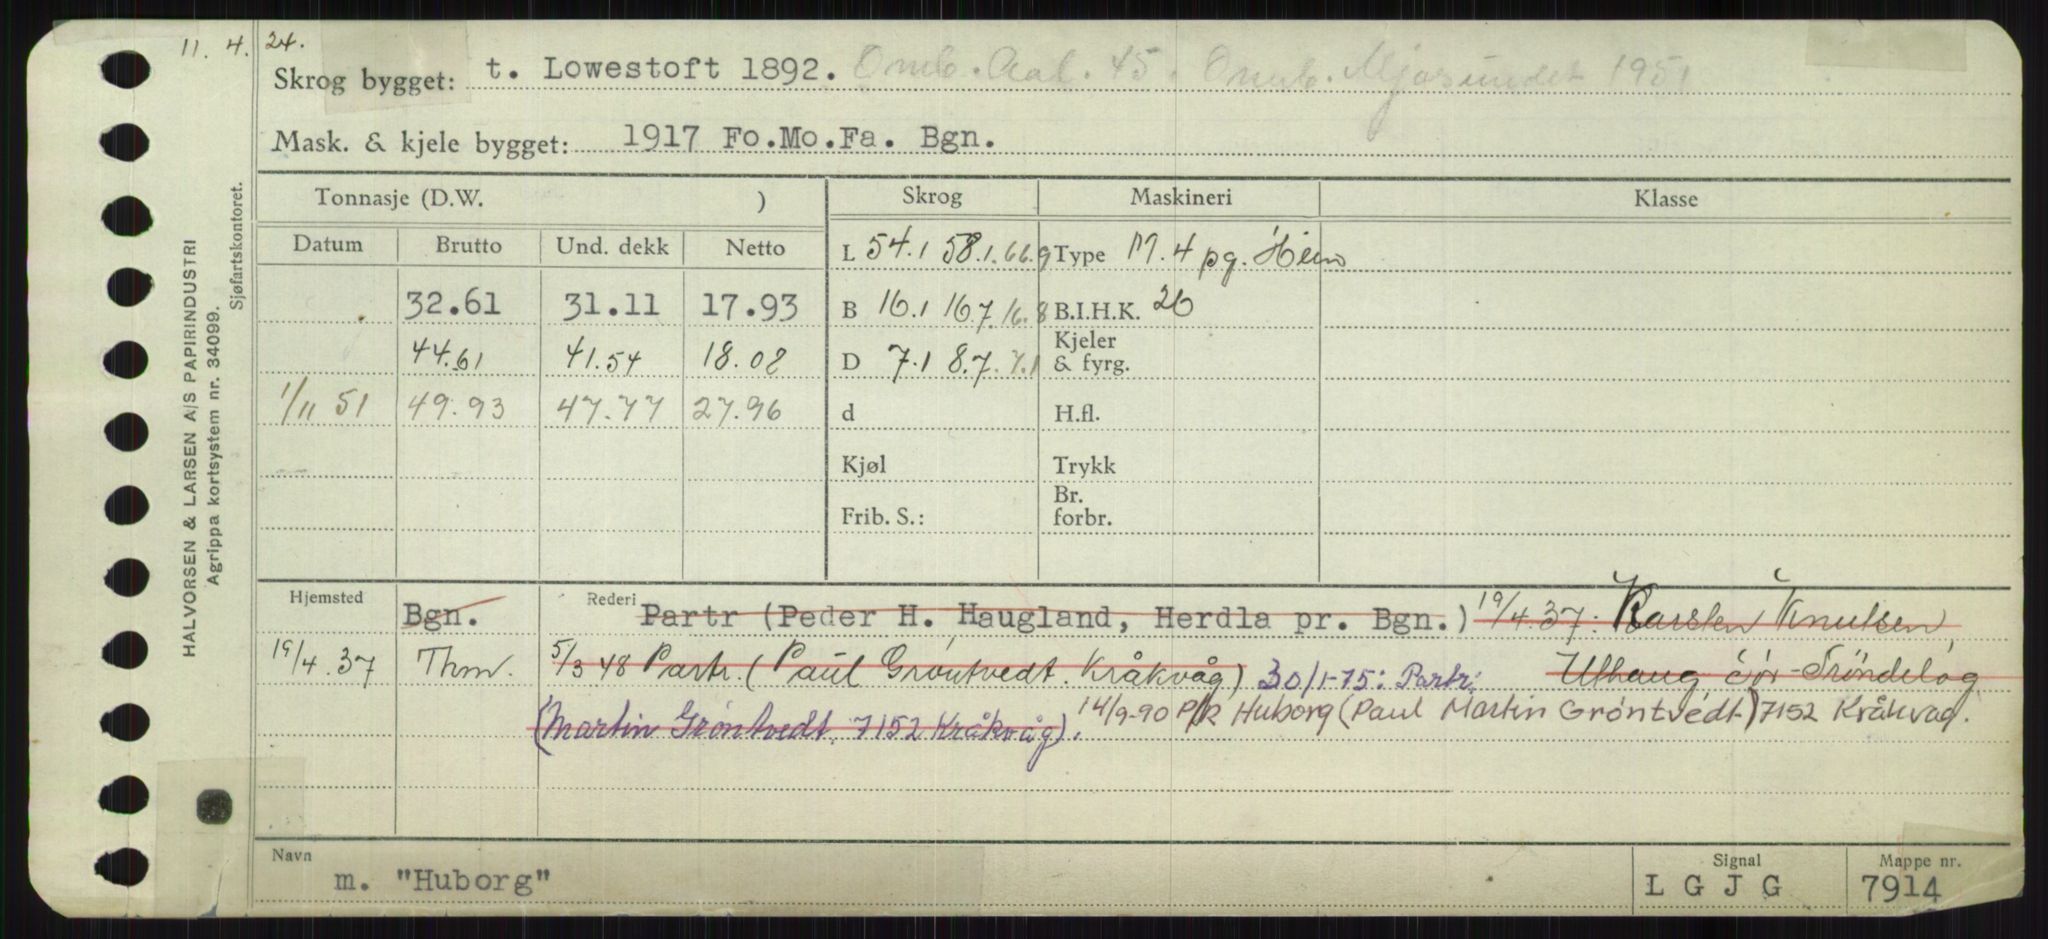 11. 4. 24.
Skrog bygget: t. Lowestoft 1892. Omb. Aal. 45. Omb. Mjosundet 1951
Mask. & kjele bygget: 1917 Fo.Mo.Fa. Bgn.
Tonnasje (D.W. ) Skrog Maskineri Klasse
Datum Brutto Und. dekk Netto L 54.1 58.1. 66.9 Type M. 4 pg. Hein
32.61 31.11 17.93 B 16.1 16.7. 16.8 B.I.H.K. 26
44.61 41.54 18.08 D 7.1 8.7. 7.1 Kjeler & fyrg.
1/11 51 49.93 47.77 27.96 d H.fl.
Kjøl Trykk
Frib. S.: Br. forbr.
Hjemsted Bgn. Rederi Partr (Peder H. Haugland, Herdla pr. Bgn.) 19/4.37: Karsten Knutsen,
19/4.37 Thm. 5/3 48 Partr. (Paul Gröntvedt. Kråkvåg) 30/1-75: Partr. Uthaug Sör-Tröndelag
(Martin Gröntvedt, 7152 Kråkvåg). 14/9-90 P/R Huborg (Paul Martin Gröntvedt) 7152 Kråkvåg.
Navn m. "Huborg" Signal L G J G Mappe nr. 7914
HALVORSEN & LARSEN A/S PAPIRINDUSTRI
Agrippa kortsystem nr. 34099.
Sjøfartskontoret.